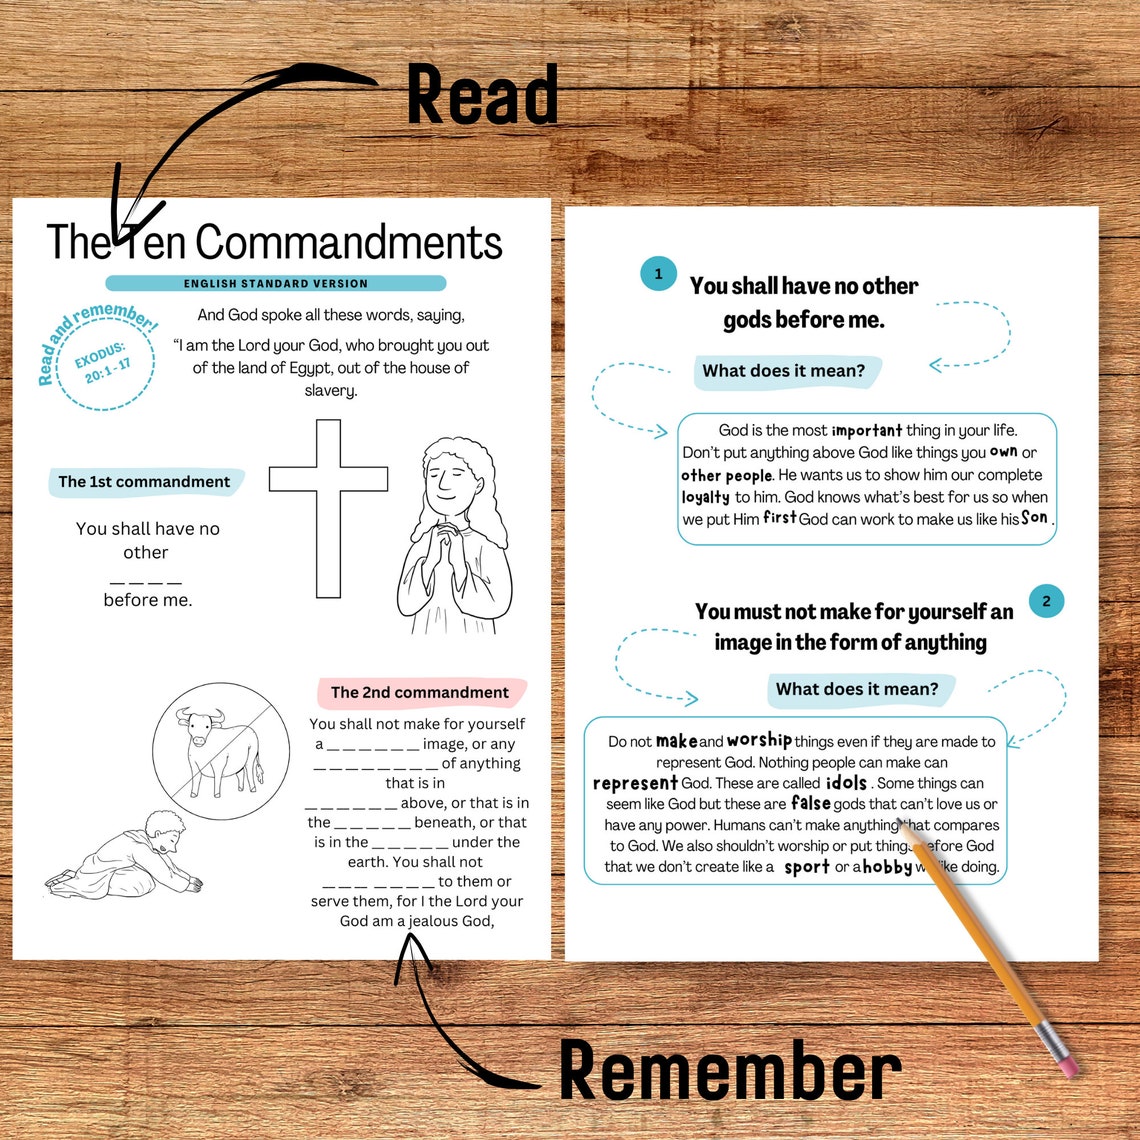 Read
The Ten Commandments
ENGLISH STANDARD VERSION
Read and remember!
EXODUS:
20: 1 - 17
And God spoke all these words, saying,
“I am the Lord your God, who brought you out
of the land of Egypt, out of the house of
slavery.
The 1st commandment
You shall have no
other
_ _ _ _
before me.
The 2nd commandment
You shall not make for yourself
a _ _ _ _ _ _ image, or any
_ _ _ _ _ _ _ _ of anything
that is in
_ _ _ _ _ _ above, or that is in
the _ _ _ _ _ beneath, or that
is in the _ _ _ _ _ under the
earth. You shall not
_ _ _ _ _ _ _ to them or
serve them, for I the Lord your
God am a jealous God,
1
You shall have no other
gods before me.
What does it mean?
God is the most important thing in your life.
Don’t put anything above God like things you own or
other people. He wants us to show him our complete
loyalty to him. God knows what’s best for us so when
we put Him first God can work to make us like his Son .
2
You must not make for yourself an
image in the form of anything
What does it mean?
Do not make and worship things even if they are made to
represent God. Nothing people can make can
represent God. These are called idols . Some things can
seem like God but these are false gods that can’t love us or
have any power. Humans can’t make anything that compares
to God. We also shouldn’t worship or put things before God
that we don’t create like a sport or a hobby we like doing.
Remember